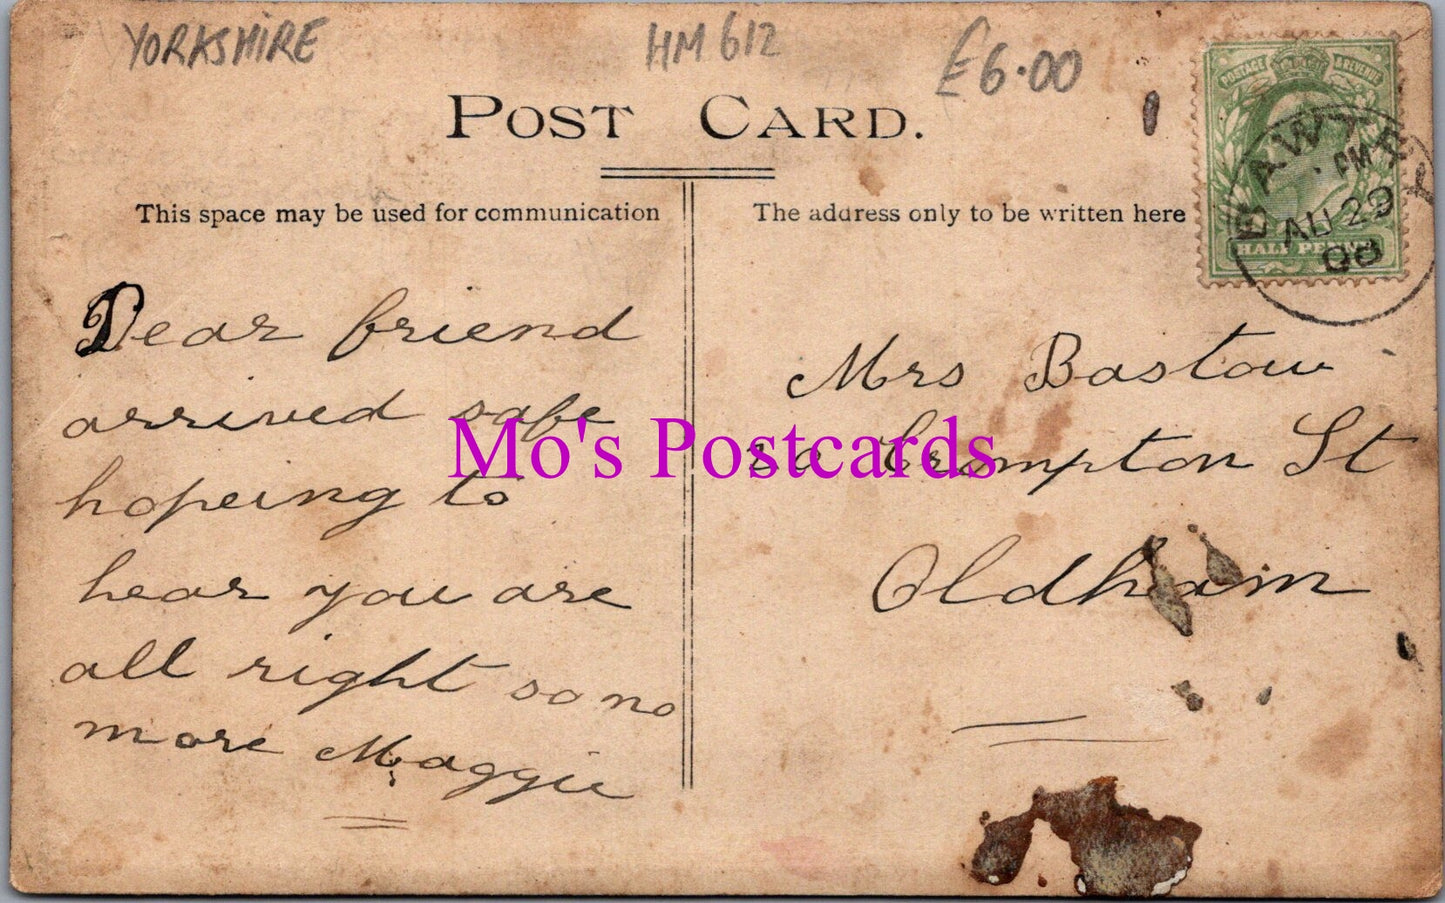 YORKSHIRE
HM 612
£6.00
POST CARD.
POSTAGE & REVENUE
BAWTRY
PM
AU 29
08
HALF PENNY
This space may be used for communication
The address only to be written here
Dear friend
arrived safe
hopeing to
hear you are
all right so no
more Maggie
Mrs Bastow
Crompton St
Oldham
Mo's Postcards